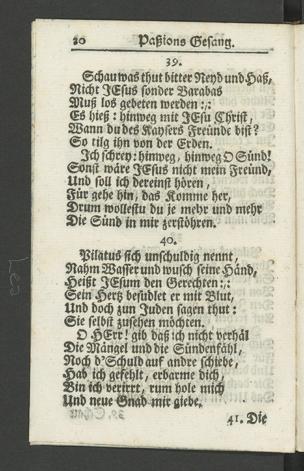 20 Paßions Gesang.
39.
Schau was thut bitter Neyd und Haß,
Nicht JEsus sonder Barabas
Muß los gebeten werden :,:
Es hieß: hinweg mit JEsu Christ,
Wann du des Kaysers Freunde bist?
So tilg ihn von der Erden.
Ich schrey: hinweg, hinweg O Sünd!
Sonst wäre JEsus nicht mein Freund,
Und soll ich dereinst hören,
Für gehe hin, das Komme her,
Drum wollestu du je mehr und mehr
Die Sünd in mir zerstöhren.
40.
Pilatus sich unschuldig nennt,
Nahm Wasser und wusch seine Händ,
Heißt JEsum den Gerechten :,:
Sein Hertz besudlet er mit Blut,
Und doch zun Juden sagen thut:
Sie selbst zusehen möchten.
O HErr! gib daß ich nicht verhäl
Die Mängel und die Sündenfähl,
Noch d'Schuld auf andre schiebe,
Hab ich gefehlt, erbarme dich,
Bin ich verirrt, rum hole mich
Und neue Gnad mir giebe.
41. Die